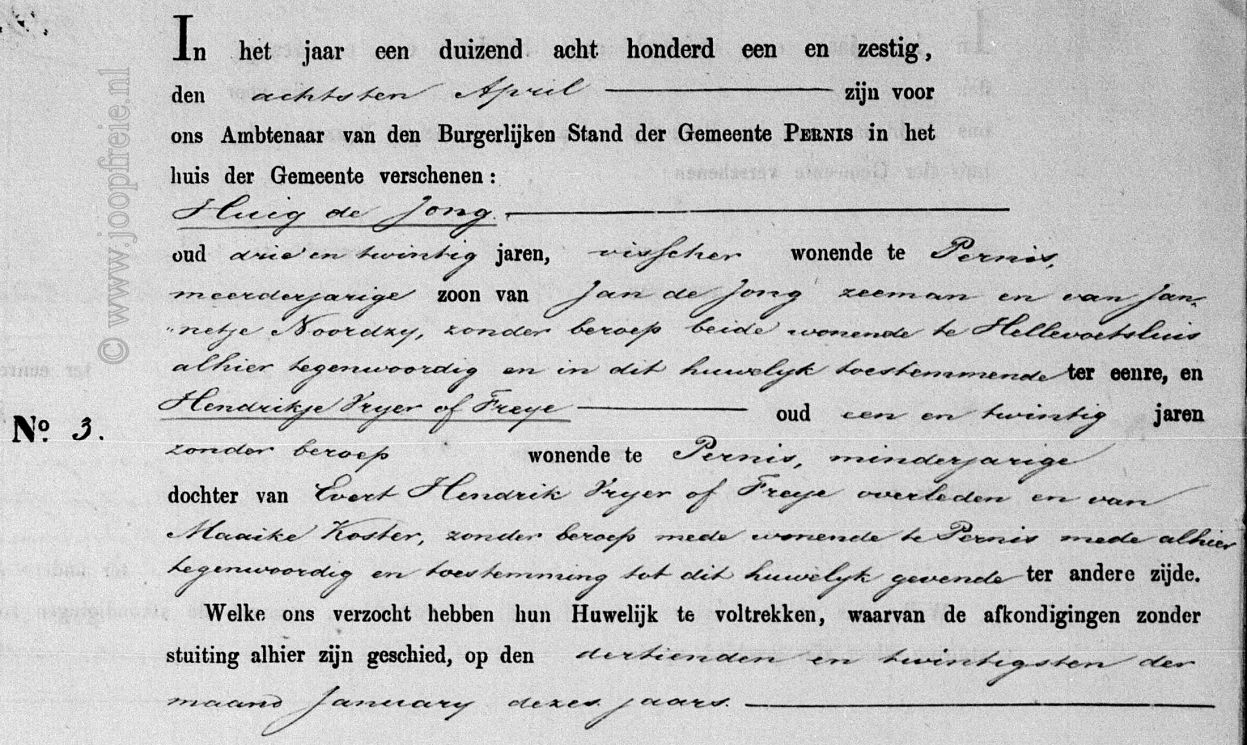 In het jaar een duizend acht honderd een en zestig,
den achtsten April zijn voor
ons Ambtenaar van den Burgerlijken Stand der Gemeente PERNIS in het
huis der Gemeente verschenen :
Huig de Jong.
oud drie en twintig jaren, visscher wonende te Pernis,
meerderjarige zoon van Jan de Jong zeeman en van Jan-
"netje Noordzy, zonder beroep beide wonende te Hellevoetsluis
alhier tegenwoordig en in dit huwelyk toestemmende ter eenre, en
Hendrikje Vryer of Freye oud een en twintig jaren
No. 3.
zonder beroep wonende te Pernis, minderjarige
dochter van Evert Hendrik Vryer of Freye overleden en van
Maaike Koster, zonder beroep mede wonende te Pernis mede alhier
tegenwoordig en toestemming tot dit huwelyk gevende ter andere zijde.
Welke ons verzocht hebben hun Huwelijk te voltrekken, waarvan de afkondigingen zonder
stuiting alhier zijn geschied, op den dertienden en twintigsten der
maand January dezes jaars.
© www.joopfreie.nl